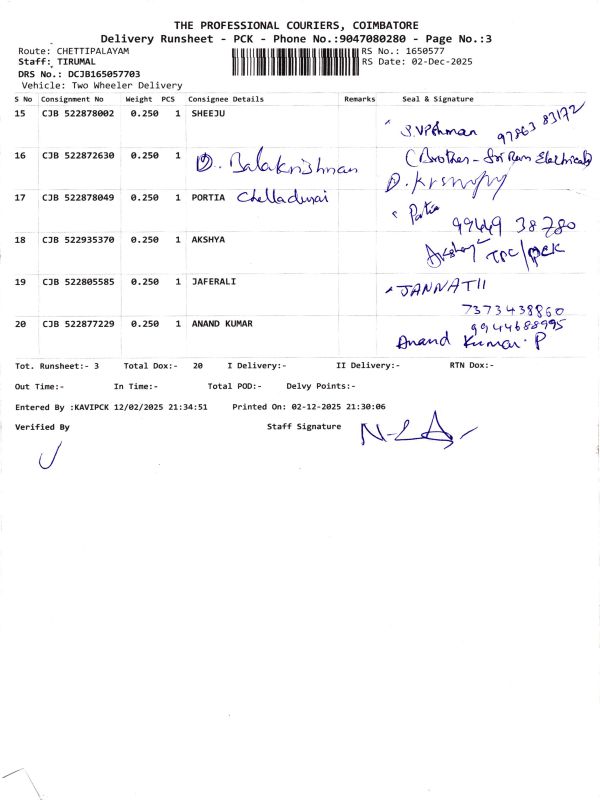 THE PROFESSIONAL COURIERS, COIMBATORE
Delivery Runsheet - PCK - Phone No.:9047080280 - Page No.:3
Route: CHETTIPALAYAM
RS No.: 1650577
Staff: TIRUMAL
RS Date: 02-Dec-2025
DRS No.: DCJB165057703
Vehicle: Two Wheeler Delivery
S No Consignment No Weight PCS Consignee Details Remarks Seal & Signature
15 CJB 522878002 0.250 1 SHEEJU 97863 83172
16 CJB 522872630 0.250 1 D. Balakrishnan (Brother - Sri Ram Electricals)
17 CJB 522878049 0.250 1 PORTIA Chelladurai Portia
99449 38780
18 CJB 522935370 0.250 1 AKSHYA Akshay TPC/PCK
19 CJB 522805585 0.250 1 JAFERALI JANNATH
7373438860
20 CJB 522877229 0.250 1 ANAND KUMAR 9944688995
Anand Kumar. P
Tot. Runsheet:- 3 Total Dox:- 20 I Delivery:- II Delivery:- RTN Dox:-
Out Time:- In Time:- Total POD:- Delvy Points:-
Entered By :KAVIPCK 12/02/2025 21:34:51 Printed On: 02-12-2025 21:30:06
Verified By Staff Signature